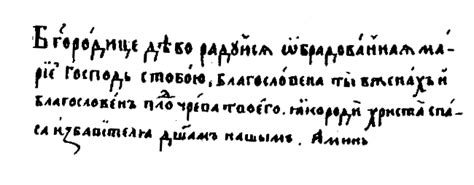 Бг҃оро́дице дѣ́во ра́дꙋйсѧ ѡ҆бра́дованнаѧ ма-
рі́е Госпо́дь с тобо́ю, благослове́на ты̀ в женах и
благослове́нъ пло́дъ чре́ва твоего̀. ꙗ҆́кѡ роди́ христа̀ спа́-
са и҆зба́вителѧ дш҃а́мъ на́шымъ. Ами́нь